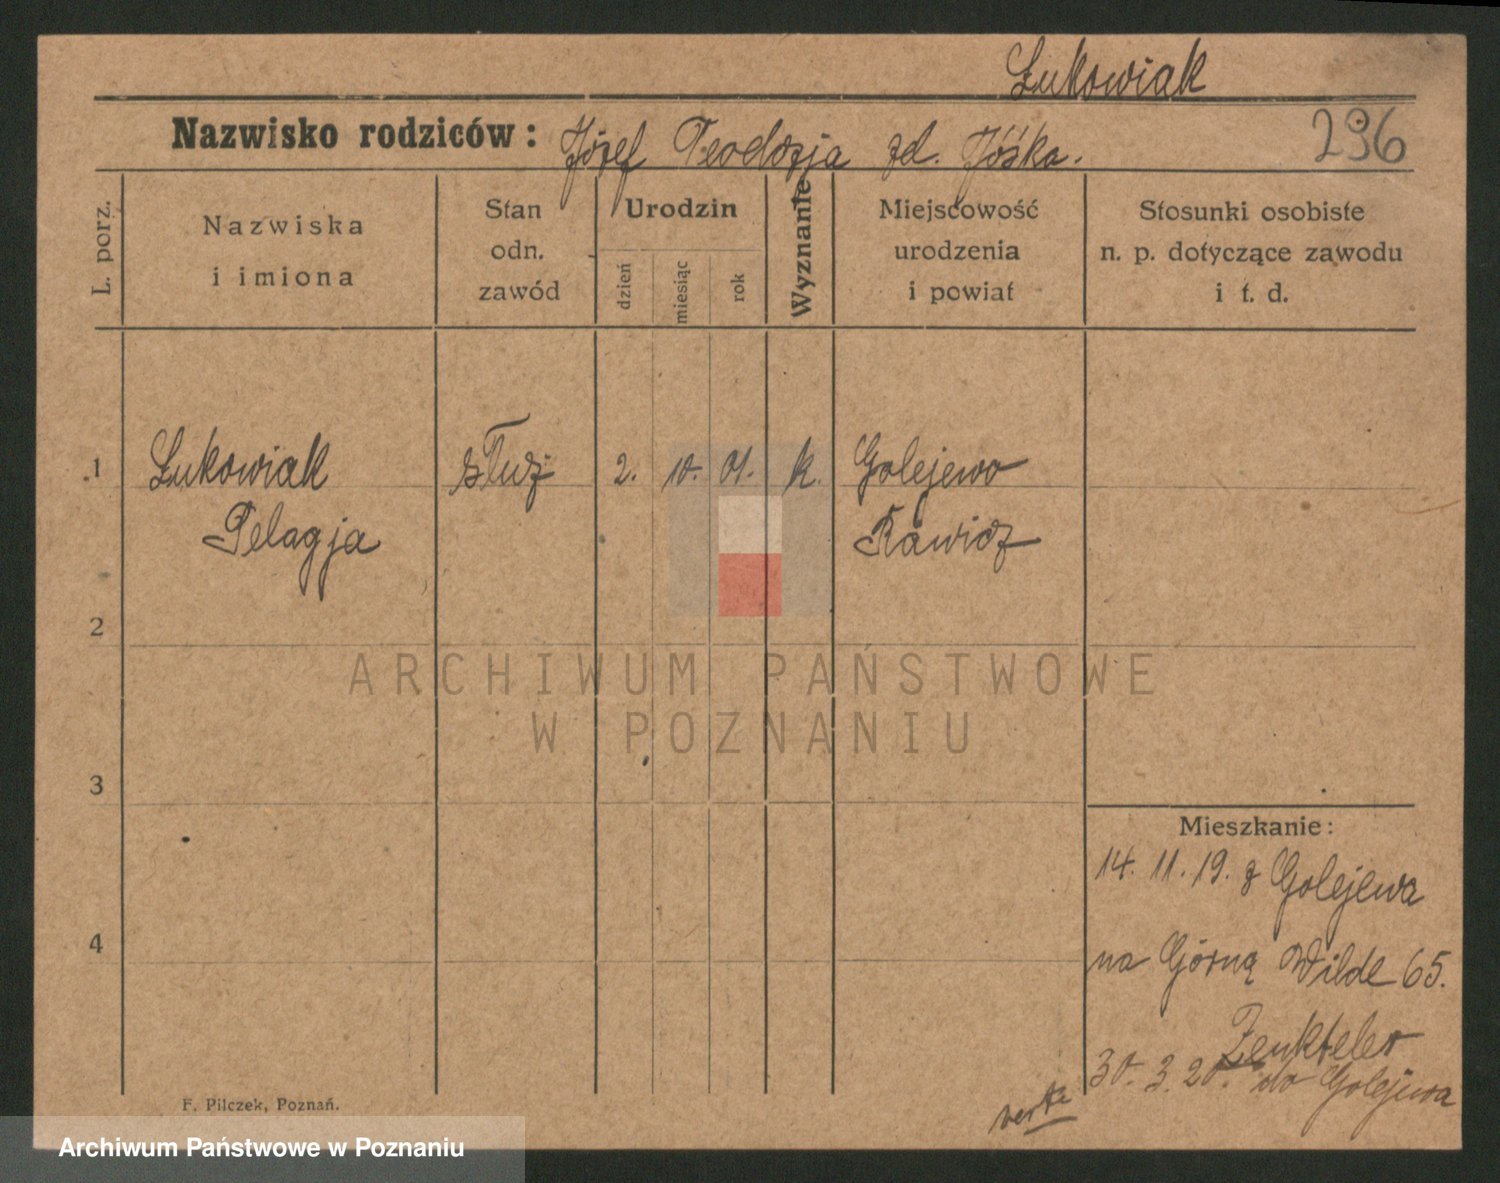 Łukowiak
296
Nazwisko rodziców: Józef Teodozja zd. Jóśka.
L. porz.
Nazwiska
i imiona
Stan
odn.
zawód
Urodzin
dzień
miesiąc
rok
Wyznanie
Miejscowość
urodzenia
i powiat
Stosunki osobiste
n. p. dotyczące zawodu
i t. d.
1 Łukowiak służ. 2. 10. 01. k. Golejewo
Pelagja Rawicz
2
ARCHIWUM PAŃSTWOWE
W POZNANIU
3
Mieszkanie:
14. 11. 19. z Golejewa
4
na Górną Wilde 65.
Zenkteler
30. 3. 20. do Golejewa
verte
F. Pilczek, Poznań.
Archiwum Państwowe w Poznaniu